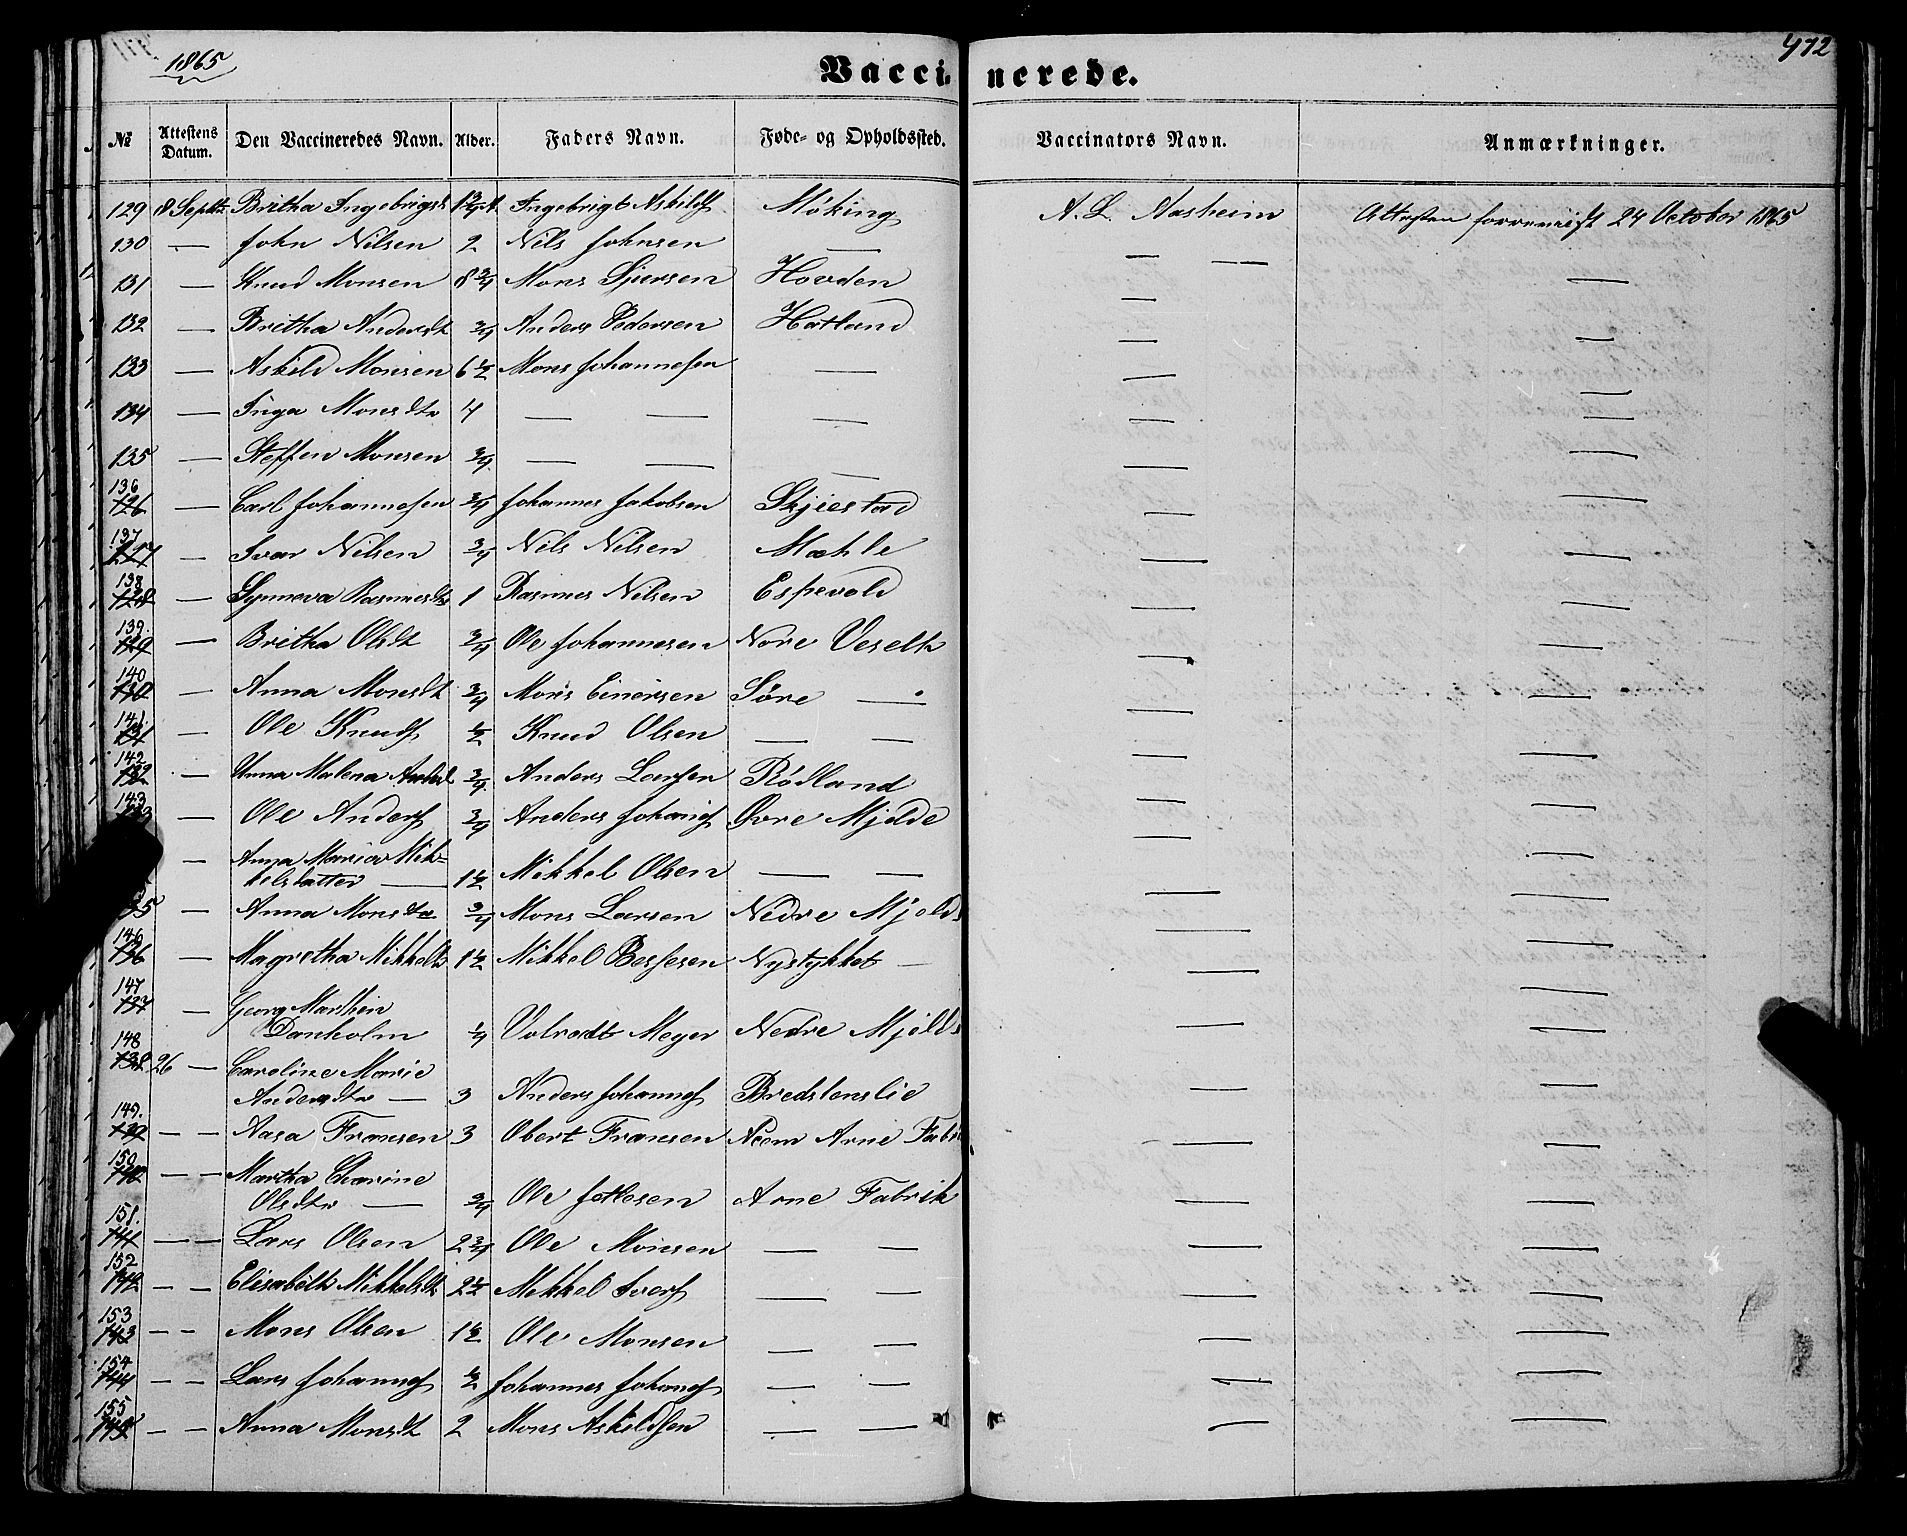 1865
Vaccinerede.
472
№ Attestens Datum. Den Vaccineredes Navn. Alder. Faders Navn. Føde- og Opholdssted. Vaccinators Navn. Anmærkninger.
129 18 Septbr Britha Ingebrigtsdt Ingebrigt Askilds Møking A. L. Aasheim Attesten forevriist 24 October 1865
130 — John Nilsen 2 Nils Johnsen — — — —
131 — Knud Monsen 8 3/4 Mons Sjursen Hovden — —
132 — Britha Andersdt 3/4 Anders Pedersen Hatland — —
133 — Askild Monsen 6 1/2 Mons Johannesen — — —
134 — Inga Monsdtr 4 — — — — —
135 — Steffen Monsen 3/4 — — — — —
136 126 — Carl Johannesen 3/4 Johannes Jakobsen Skjiestad — —
137 127 — Ivar Nilsen 3/4 Nils Nilsen Mæhle — —
138 128 — Synneva Rasmusdtr 1 Rasmus Nilsen Espevold — —
139 129 — Britha Olsdt 3/4 Ole Johannesen Nore Veselk — —
140 130 — Anna Monsdt 3/4 Mons Einersen Søre — — —
141. 131 — Ole Knuds 1/2 Knud Olsen — — — —
142 132 — Anna Malena Andersd 3/4 Anders Larsen Rødland — —
143 133 — Ole Anders 3/4 Anders Johans Øvre Mjelde — —
— Anna Maria Mik-
kelsdatter — 1 1/2 Mikkel Olsen — — — —
135 — Anna Monsdtr 3/4 Mons Larsen Nedre Mjeld — —
146 136 — Magretha Mikkelsdtr 1 1/2 Mikkel Bessesen Nystykket — — —
147 137 — Georg Marthin
Danholm 1/4 Volradt Meyer Nedre Mjeld — —
148 138 26 — Caroline Marie
Andersdtr — 3 Anders Johannes Bredstenslie — —
149. 139 — — Aasa Fransen 3 Obert Fransen Neom Arne Fabr — —
150 140 — — Martha Charine
Olsdtr — 3/4 Ole Jetlesen Arne Fabrik — —
151. 141 — — Lars Olsen 2 3/4 Ole Monsen — — — —
152 142 — — Elisabeth Mikkelsdt 2 1/2 Mikkel Ivers — — — —
153 143 — — Mons Olsen 1 1/2 Ole Monsen — — — —
154 144 — — Lars Johannes 1/2 Johannes Johans — — — —
155 145 — — Anna Monsdt 2 Mons Askildsen — — — —